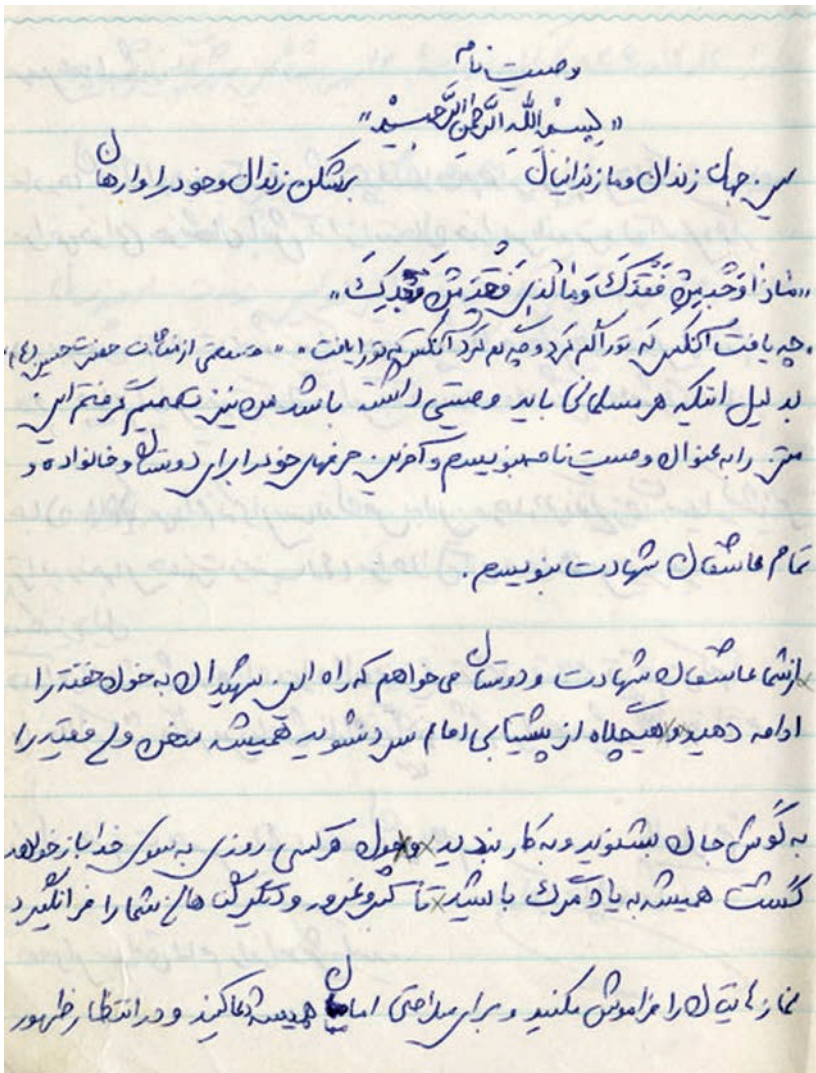 وصیت نامه
«بِسْمِ اللَّهِ الرَّحْمنِ الرَّحیمْ»
این جهان زندان و ما زندانیان بشکن زندان و خود را وارهان
«ماذا وَجَدَ مَنْ فَقَدَکَ وَمَا الَّذی فَقَدَ مَنْ وَجَدَکَ»
«چه یافت آنکس که تو را گم کرد و چه گم کرد آنکس که تو را یافت» «قسمتی از مناجات حضرت حسین (ع)»
به دلیل اینکه هر مسلمانی باید وصیتی داشته باشد من نیز تصمیم گرفتم این
متن را به عنوان وصیت نامه بنویسم و آخرین حرفهای خود را برای دوستان و خانواده و
تمام عاشقان شهادت بنویسم.
از شما عاشقان شهادت و دوستان می‌خواهم که راه این شهیدان به خون خفته را
ادامه دهید و هیچگاه از پشتیبانی امام سرد نشوید همیشه سخن ولی فقیه را
به گوش جان بشنوید و به کار بندید و چون هر کسی روزی به سوی خدا باز خواهد
گشت همیشه به یاد مرگ باشید تا کبر و غرور و دیگر گناهان شما را فرا نگیرد
نمازهایتان را فراموش نکنید و برای سلامتی اماممان همیشه دعا کنید و در انتظار ظهور